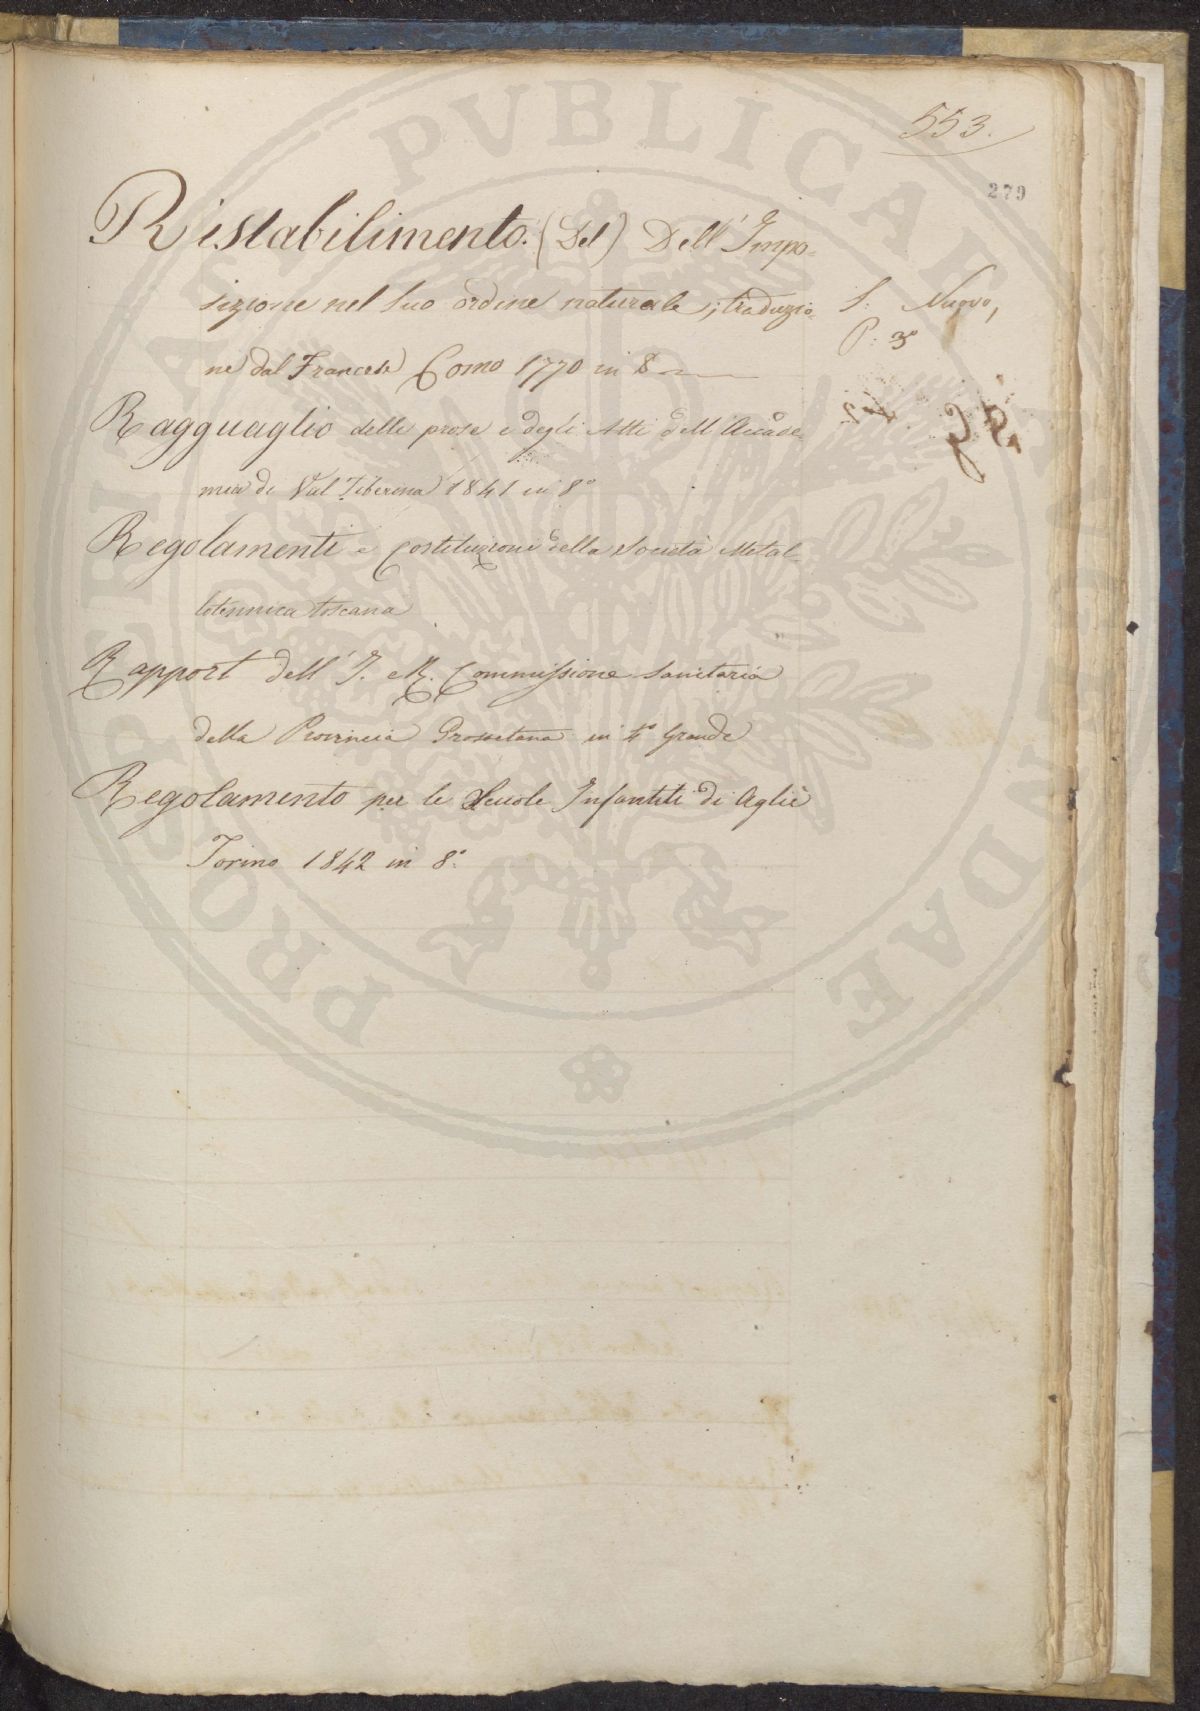 553.
279
Ristabilimento. (Del) Dell' Impo=
sizione nel suo ordine naturale; traduzio=
ne dal Francese Como 1770 in 8
S: Nuovo,
P: 3
Ragguaglio delle prose e degli Atti dell' Accade=
mia di Val Tiberina 1841 in 8°
Regolamenti e Costituzioni della Società Metal=
lotennica toscana
Rapport dell' I. e R. Commissione sanitaria
della Provincia Grossetana in 4° Grande
Regolamento per le Scuole Infantili di Agliè
Torino 1842 in 8°
PROSPERITATI PVBLICAE AVGENDAE